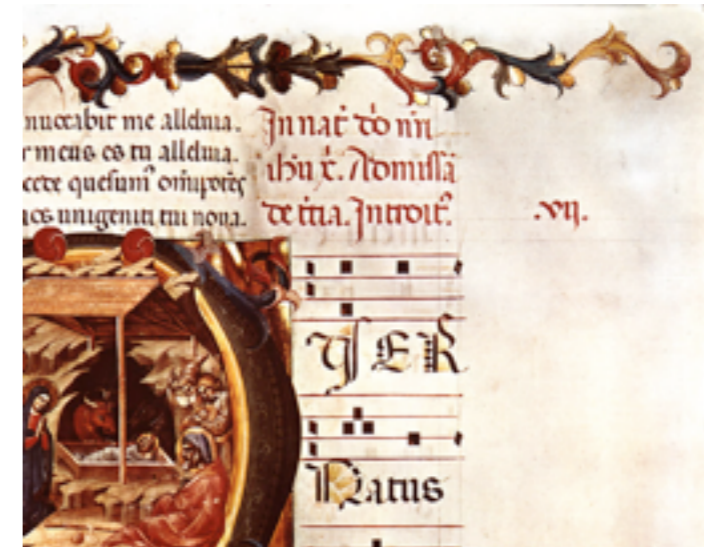 nuccabit me alleluia.
meus es tu alleluia.
quesum̄ om̄ipotēs
unigeniti tui noua.
In nat̄ dō nr̄i
ih̄u x̄. Ad missā
de t̄tia. Introit̄.
.vij.
YER
Natus